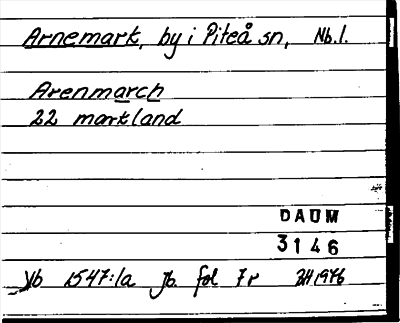 Arnemark, by i Piteå sn, Nb.l.
Arenmarch
22 markland
DAUM
3146
Vb 1547:1a Jb. fol 7r